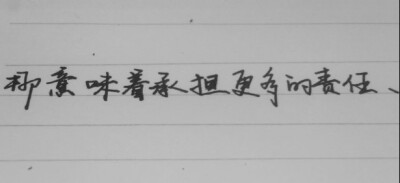 柳意味着承担更多的责任、